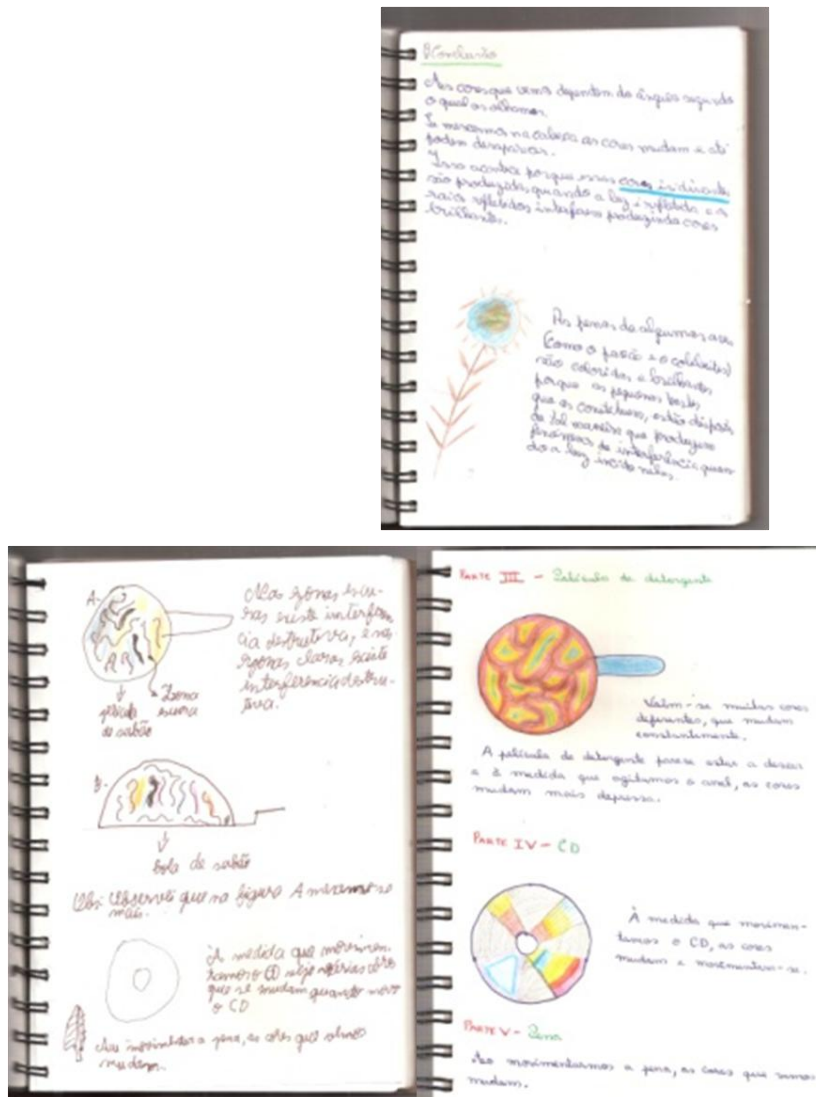 Conclusão
As cores que vemos dependem do ângulo segundo
o qual os olhamos.
Se mexermos na cabeça as cores mudam e até
podem desaparecer.
Isso acontece porque essas cores
são produzidas quando a luz é refletida e os
raios refletidos interferem produzindo cores
brilhantes.
As penas de algumas aves
(como o pavão e o colibri
são coloridas e brilhantes
porque as pequenas
que as constituem, estão
de tal maneira que produzem
fenómenos de interferência quan-
do a luz incide nelas.
A-
película
de sabão
Zona
escura
Nas zonas escu-
ras existe interferên-
cia destrutiva, e nas
zonas claras existe
interferência
B-
bola de sabão
Obs: Observei que na figura A
mais.
À medida que movimen-
tamos o CD vejo várias
que se mudam quando movo
o CD
Ao movimentar a pena, as cores que
mudam
PARTE III - Película de detergente
Vêem-se muitas cores
diferentes, que mudam
constantemente.
A película de detergente parece estar a descer
e à medida que agitamos o anel, as cores
mudam mais depressa.
PARTE IV - CD
À medida que movimen-
tamos o CD, as cores
mudam e movimentam-se.
PARTE V - Pena
Ao movimentarmos a pena, as cores que vemos
mudam.